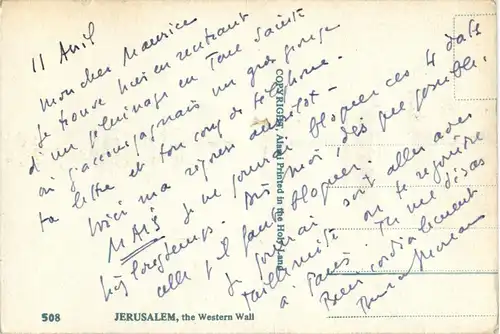 11 Avril
Mon cher Maurice
je trouve hier en rentrant
d'un pèlerinage en Terre Sainte
où j'accompagnais un gros groupe
ta lettre et ton coup de téléphone.
Voici ma réponse aussitôt -
MAIS je ne pourrai bloquer ces 4 dates
très longtemps. Dis moi, dès que possible.
celle qu'il faut bloquer.
Je pourrai soit aller avec
toi
ou te rejoindre
à Paris. Tu me diras
Bien cordialement
508
JERUSALEM, the Western Wall
COPYRIGHT, Printed in the Holy Land